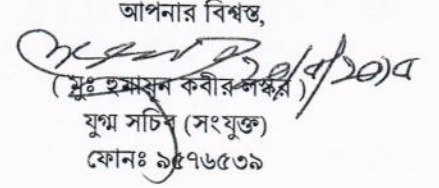 আপনার বিশ্বস্ত,
(মুঃ হুমায়ুন কবীর লস্কর)
যুগ্ম সচিব (সংযুক্ত)
ফোনঃ ৯৫৭৬৫৩৯